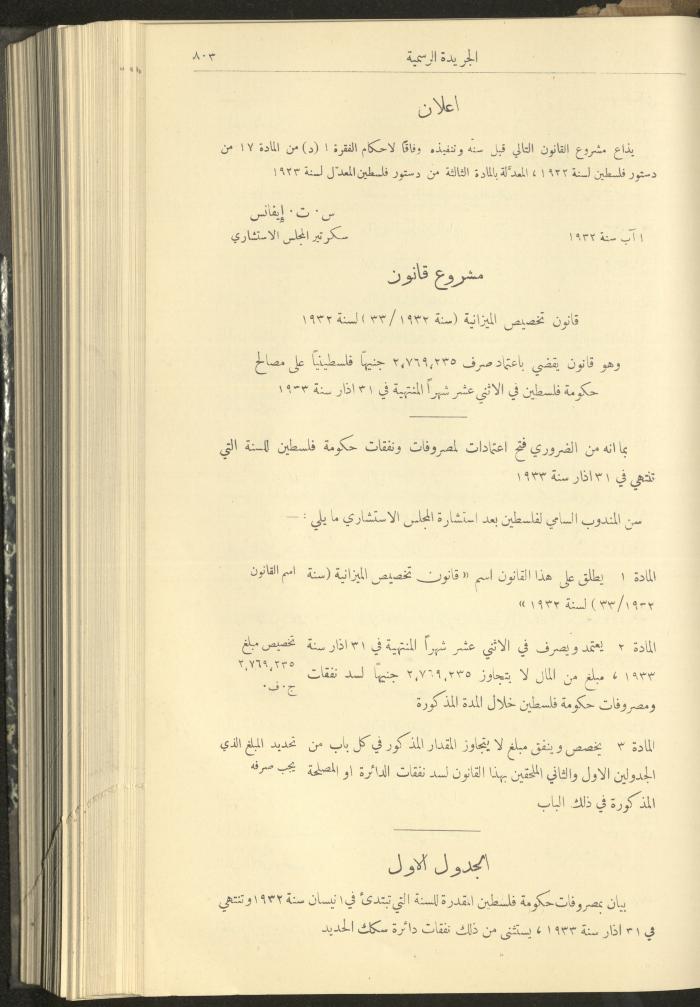 الجريدة الرسمية ٨٠٣
اعلان
يذاع مشروع القانون التالي قبل سنّه وتنفيذه وفاقًا لاحكام الفقرة ١ (د) من المادة ١٧ من
دستور فلسطين لسنة ١٩٢٢ ، المعدّلة بالمادة الثالثة من دستور فلسطين المعدّل لسنة ١٩٢٣
س . ت . إيفانس
١ آب سنة ١٩٣٢ سكرتير المجلس الاستشاري
مشروع قانون
قانون تخصيص الميزانية (سنة ١٩٣٢/٣٣) لسنة ١٩٣٢
وهو قانون يقضي باعتماد صرف ٢,٧٦٩,٢٣٥ جنيهًا فلسطينيًا على مصالح
حكومة فلسطين في الاثني عشر شهراً المنتهية في ٣١ اذار سنة ١٩٣٣
بما انه من الضروري فتح اعتمادات لمصروفات ونفقات حكومة فلسطين للسنة التي
تنتهي في ٣١ اذار سنة ١٩٣٣
سن المندوب السامي لفلسطين بعد استشارة المجلس الاستشاري ما يلي : —
المادة ١ يطلق على هذا القانون اسم « قانون تخصيص الميزانية (سنة اسم القانون
١٩٣٢/٣٣) لسنة ١٩٣٢ »
المادة ٢ يعتمد ويصرف في الاثني عشر شهراً المنتهية في ٣١ اذار سنة تخصيص مبلغ
١٩٣٣ ، مبلغ من المال لا يتجاوز ٢,٧٦٩,٢٣٥ جنيهًا لسد نفقات ٢,٧٦٩,٢٣٥
ومصروفات حكومة فلسطين خلال المدة المذكورة ج . ف .
المادة ٣ يخصص وينفق مبلغ لا يتجاوز المقدار المذكور في كل باب من تحديد المبلغ الذي
الجدولين الاول والثاني الملحقين بهذا القانون لسد نفقات الدائرة او المصلحة يجب صرفه
المذكورة في ذلك الباب
الجدول الاول
بيان بمصروفات حكومة فلسطين المقدرة للسنة التي تبتدئ في ١ نيسان سنة ١٩٣٢ وتنتهي
في ٣١ اذار سنة ١٩٣٣ ، يستثنى من ذلك نفقات دائرة سكك الحديد